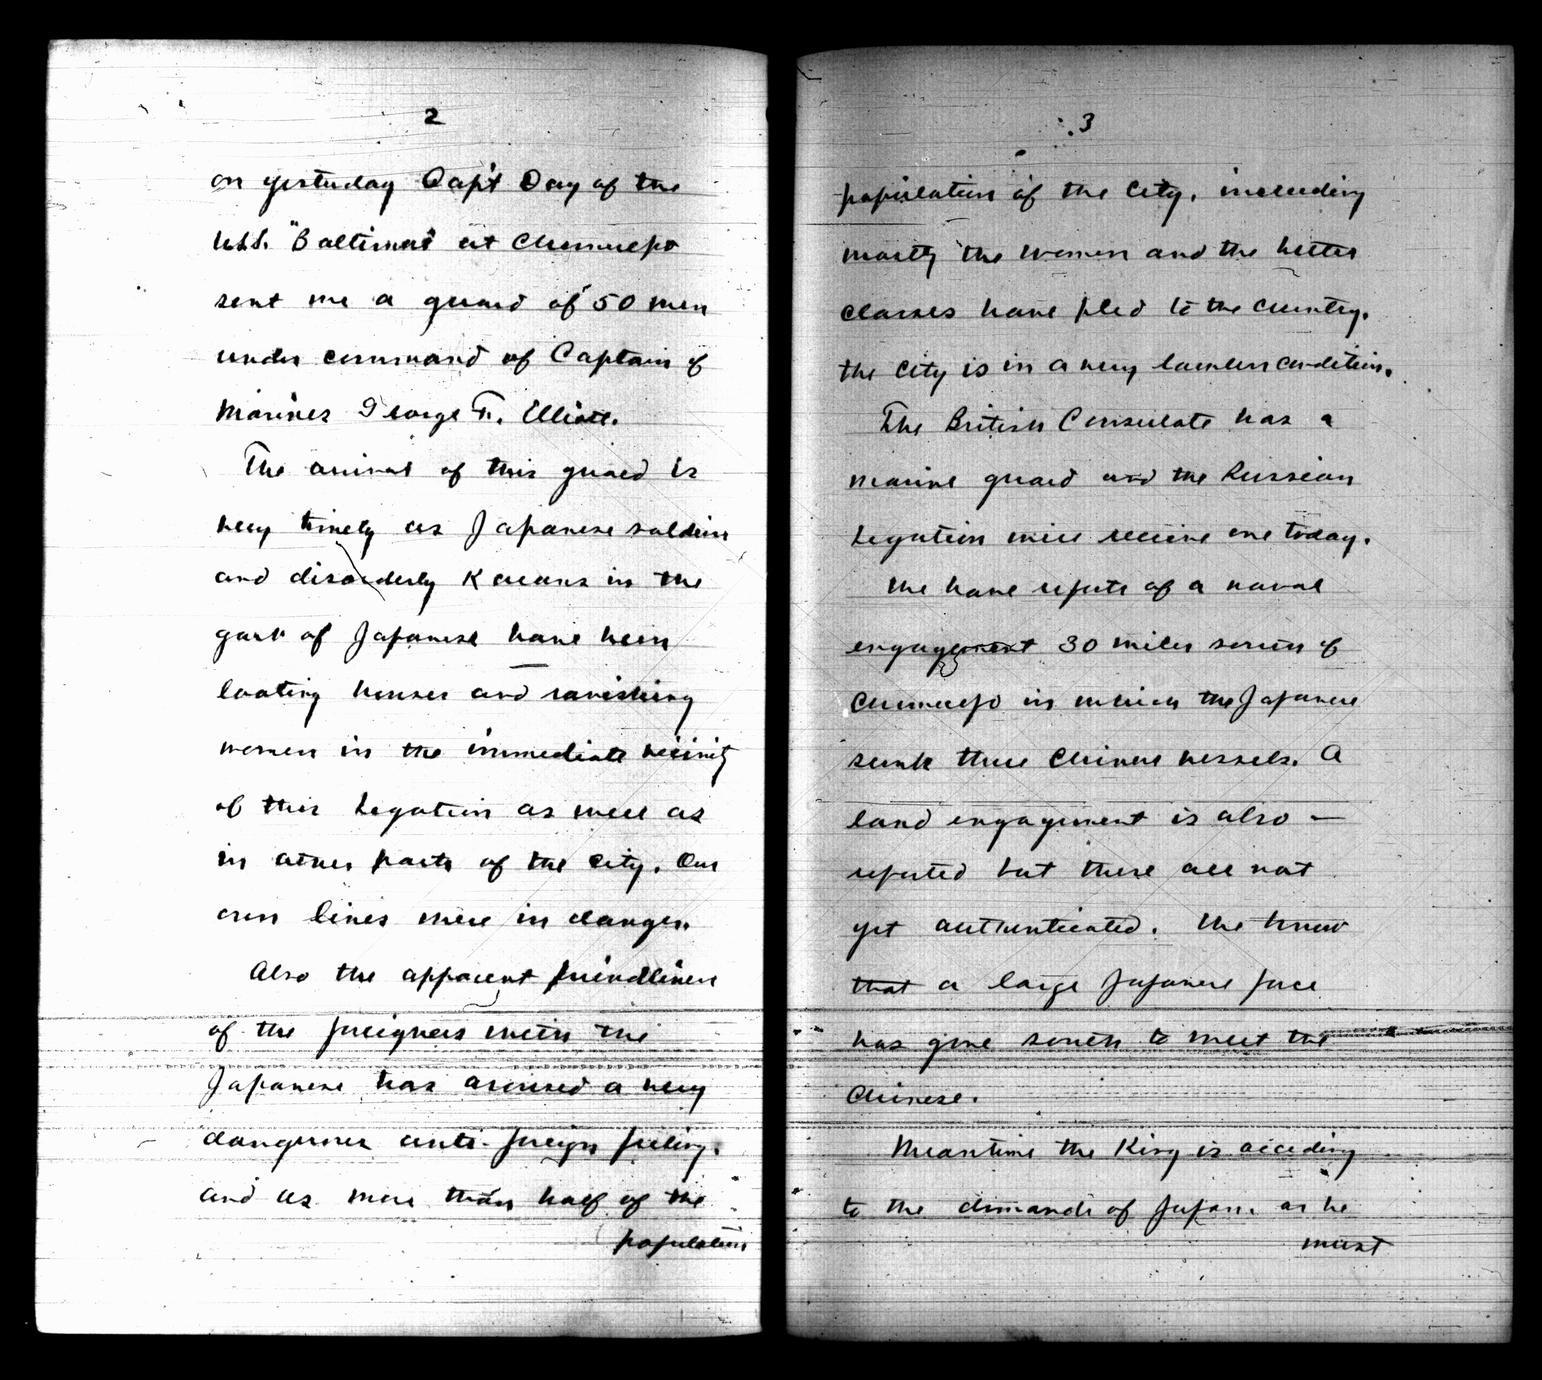 2
on yesterday Capt Day of the
U.S.S. "Baltimore" at Chemulpo
sent me a guard of 50 men
under command of Captain of
Marines George F. Elliott.
The arrival of this guard is
very timely as Japanese soldiers
and disorderly Koreans in the
garb of Japanese have been
looting houses and ravishing
women in the immediate vicinity
of this Legation as well as
in other parts of the city. Our
own lines were in danger.
Also the apparent friendliness
of the foreigners with the
Japanese has aroused a very
dangerous anti-foreign feeling.
and as more than half of the
population
3
population of the city, including
mostly the women and the better
classes have fled to the country,
the city is in a very lawless condition.
The British Consulate has a
marine guard and the Russian
Legation will receive one today.
We have reports of a naval
engagement 30 miles south of
Chemulpo in which the Japanese
sunk three Chinese vessels. A
land engagement is also —
reported but these are not
yet authenticated. We know
that a large Japanese force
has gone south to meet the
Chinese.
Meantime the King is acceding
to the demands of Japan. as he
must